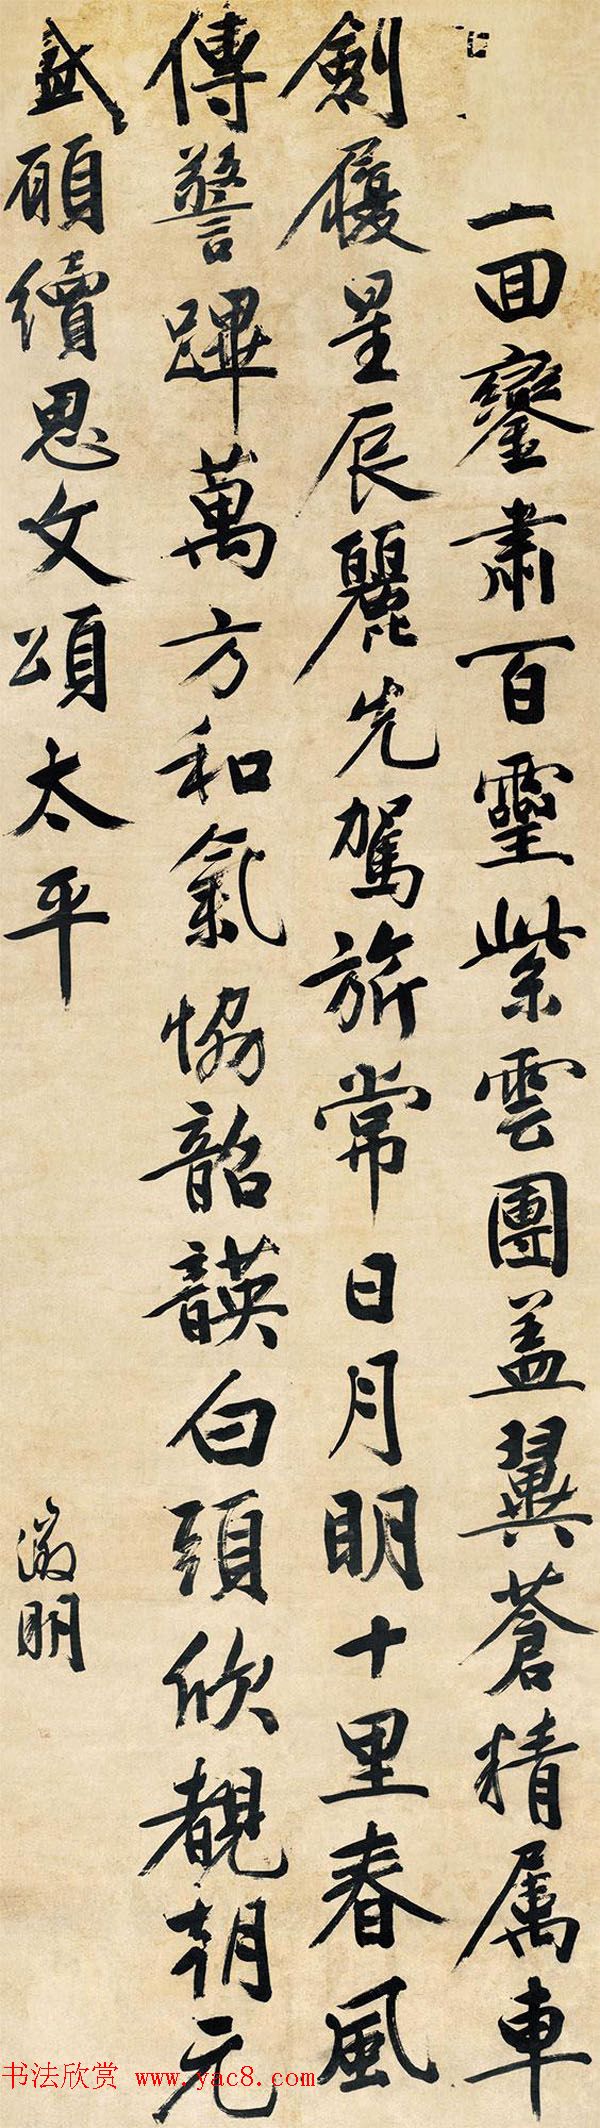 一回鑾肅百靈紫雲團盖翼蒼精属車
劍履星辰麗先駕旂常日月明十里春風
傳警蹕萬方和氣協韶韺白頭欣覩朝元
盛願續思文頌太平
徵明
书法欣赏 www.yac8.com